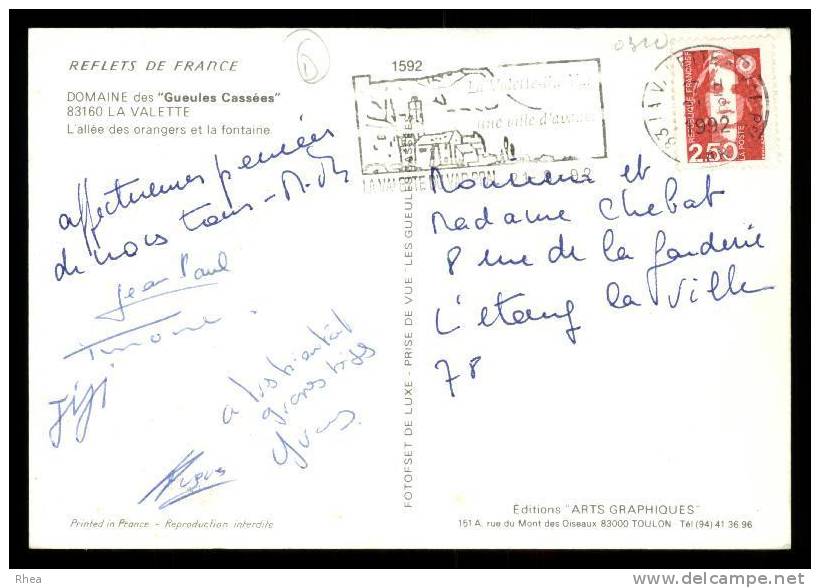 REFLETS DE FRANCE
DOMAINE des "Gueules Cassées"
83160 LA VALETTE
L'allée des orangers et la fontaine
affectueuses pensées
de nous tous - M.
Jean Paul
Simone
Jiji
a très bientôt
grosses bises
Yvan
Hugues
Printed in France - Reproduction interdite
1592
La Valette-du-Var
une ville d'avenir
LA VALETTE DU VAR
FOTOFSET DE LUXE - PRISE DE VUE LES GUEULES CASSEES
RÉPUBLIQUE FRANÇAISE
LA POSTE
2,50
992
Monsieur et
Madame Chebat
8 rue de la garderie
L'étang la Ville
78
Éditions "ARTS GRAPHIQUES"
151 A, rue du Mont des Oiseaux 83000 TOULON Tél (94) 41 36 96
Rhea
www.delcampe.net